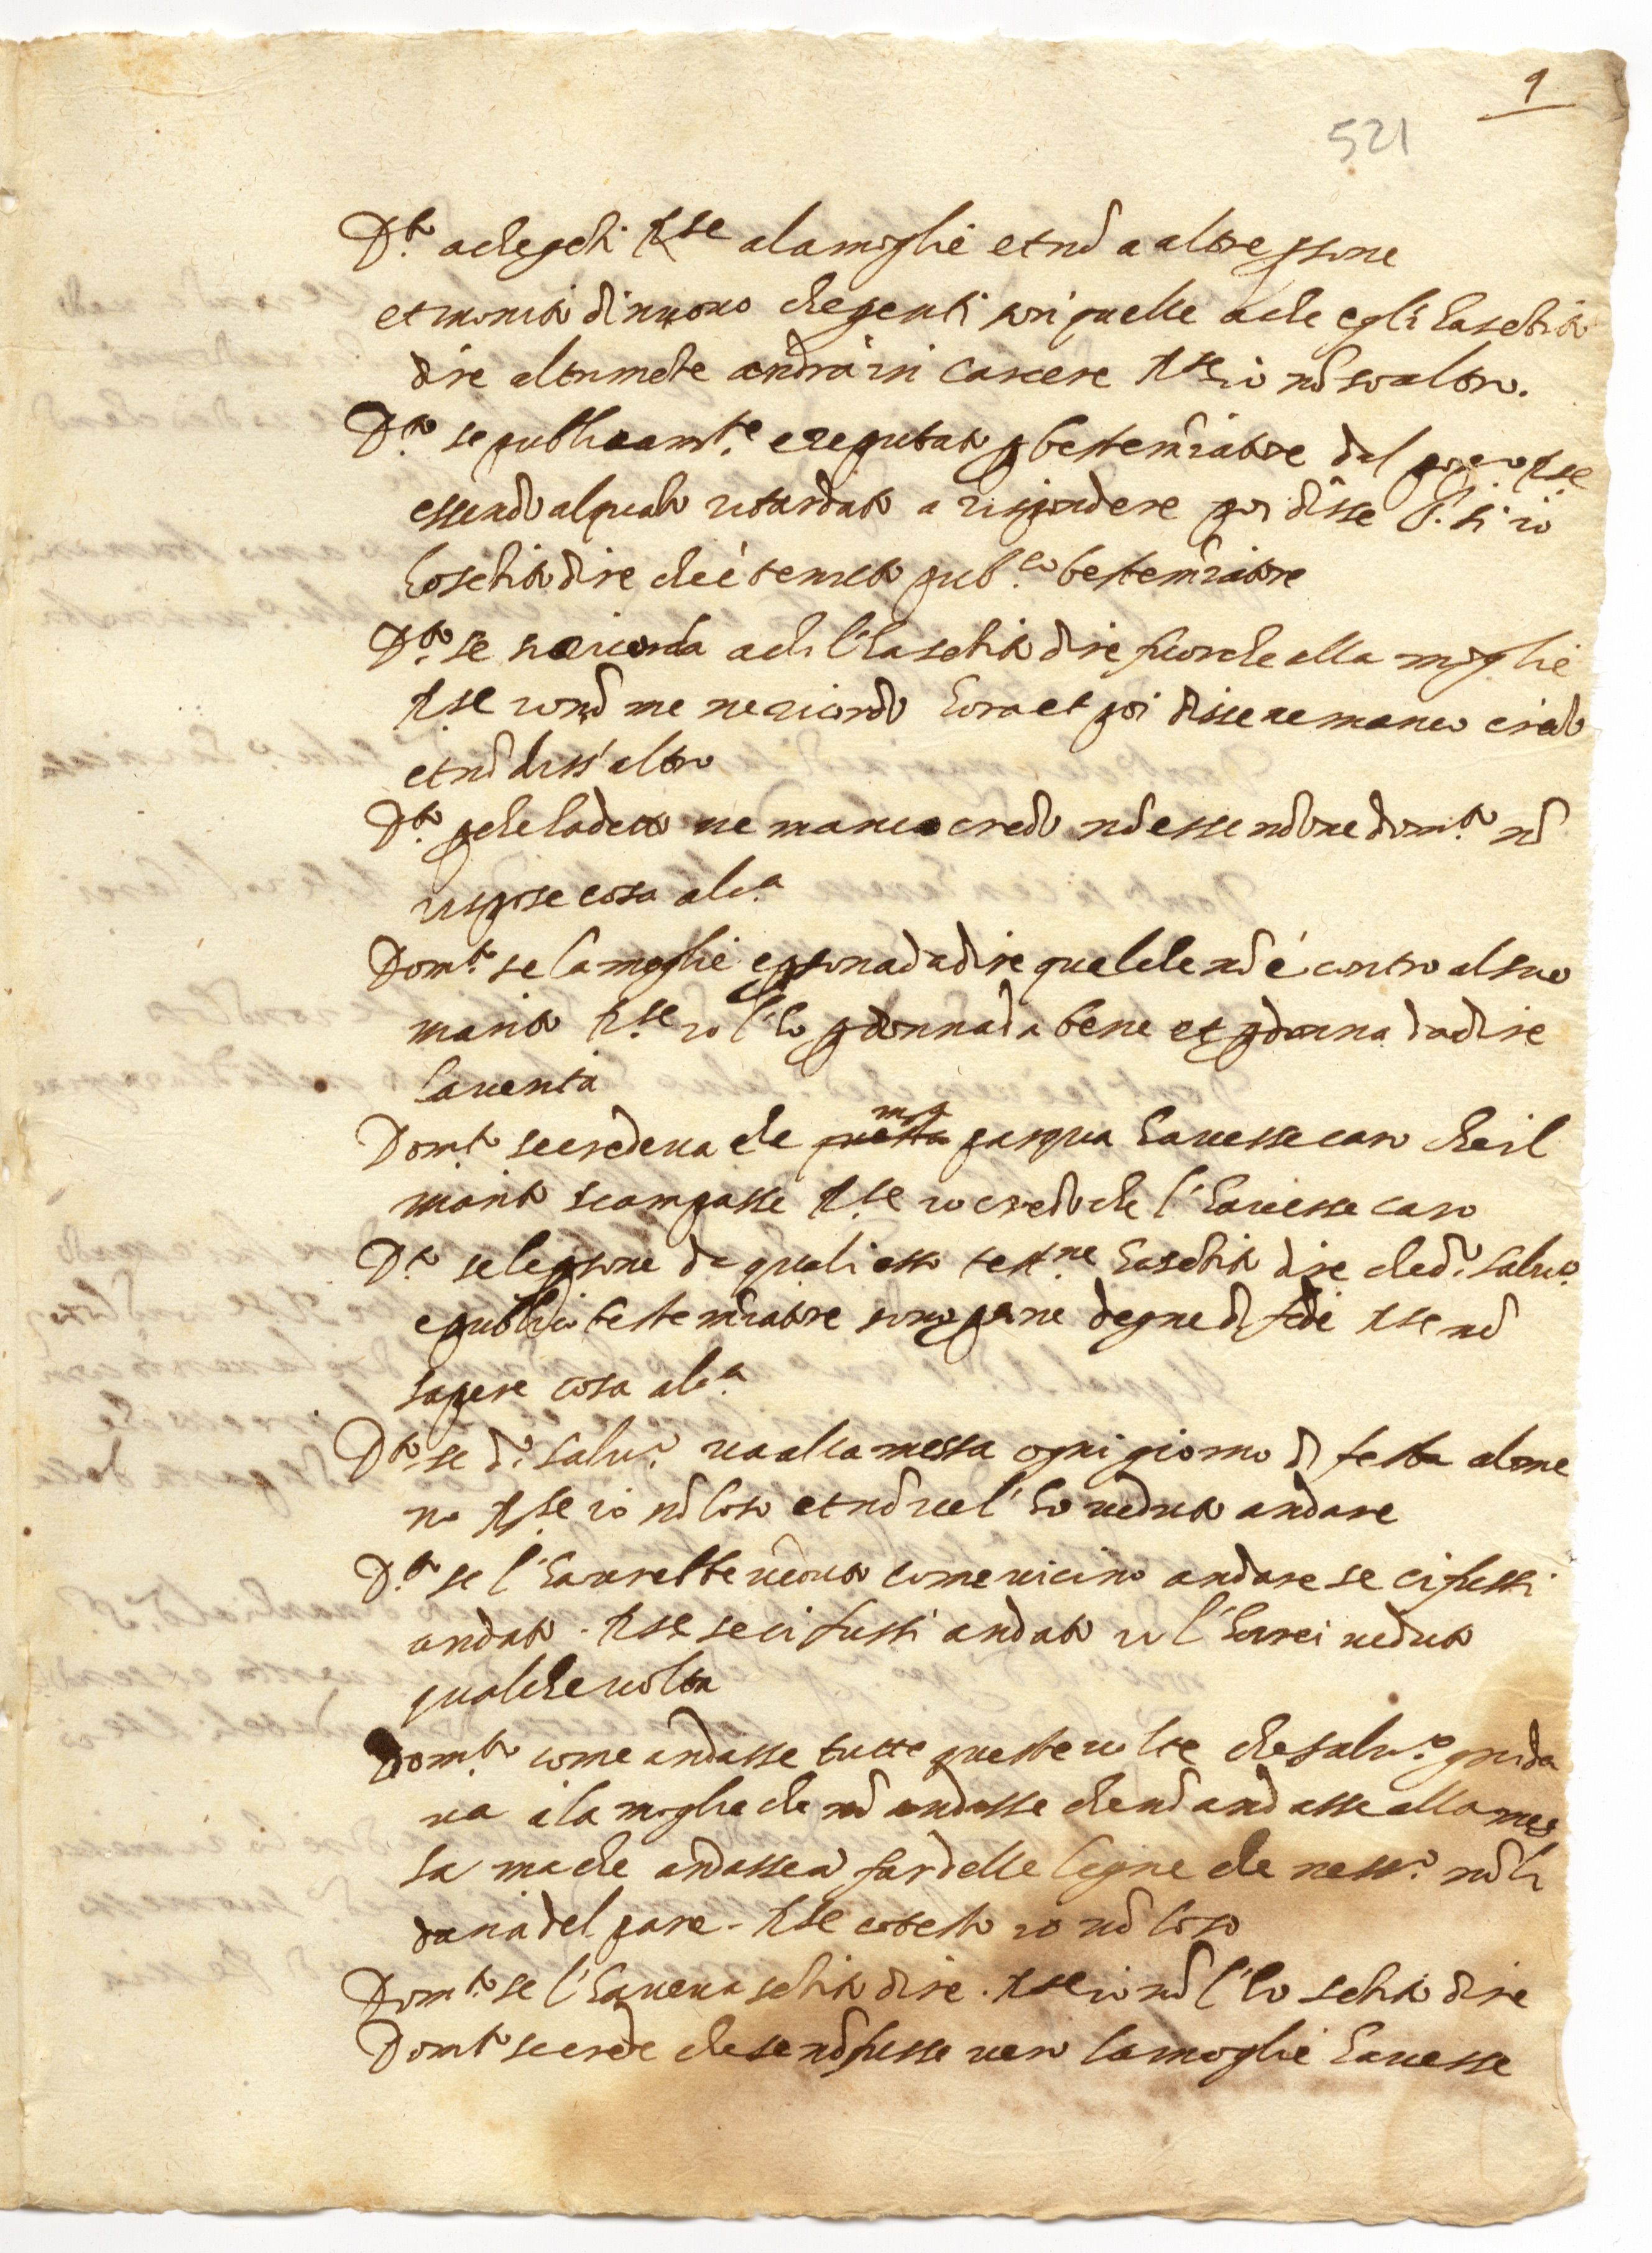 9
521
D.to a che gēti R.se a la moglie et nō a altre p̱sone
et monito di nuovo che genti son quelle a che egli ha sētito
dire altrimēte andrà in carcere R.se io nō so altro.
D.to se publicam.te e reputato p̱ bestemiatore dal R.se
essendo alquāto ritardato a rispondere poi disse P. si io
ho sētito dire che è tenuto pub.co bestemiatore
D.to se si ricorda a chi l'ha sētito dire fuor che alla moglie
R.se io nō me ne ricordo hora et poi disse ne manco credo
et nō diss' altro
D.to p̱che ha detto ne manco credo nō essendone dom.to nō
rispose cosa alc.a
Dom.to se la moglie e p̱sona da dire quel che nō é contro al suo
marito R.se io l'ho p̱ donna da bene et p̱ donna da dire
la verità
Dom.to se credeva che questa mͣ pasqua havesse caro che il
marito scampasse R.se io credo che l'havesse caro
D.to se le p̱sone da quali esso test.ne ha sētito dire che d.o Salv.e
e publico bestemiatore sono p̱sone degne di fede R.se nō
sapere cosa alc.a
D.to se d.o Salv.e va alla messa ogni giorno di festa alme
no R.se io nō lo so et nō ve l'ho veduto andare
D.to se l'havrebbe veduto come vicino andare se ci fussi
andato. R.se se ci fussi andato io l'harei veduto
qualche volta
Dom.to come andasse tutte queste volte che Salv.e grida
va a la moglie che nō andasse che nō andasse alla mes
sa ma che andasse a far delle legne che ness.o nō li
daria del pane. R.se cotesto io nō lo so
Dom.to se l'haveva sētito dire. R.se io nō l'ho sētito dire
Dom.to se crede che se nō fusse vero la moglie havesse